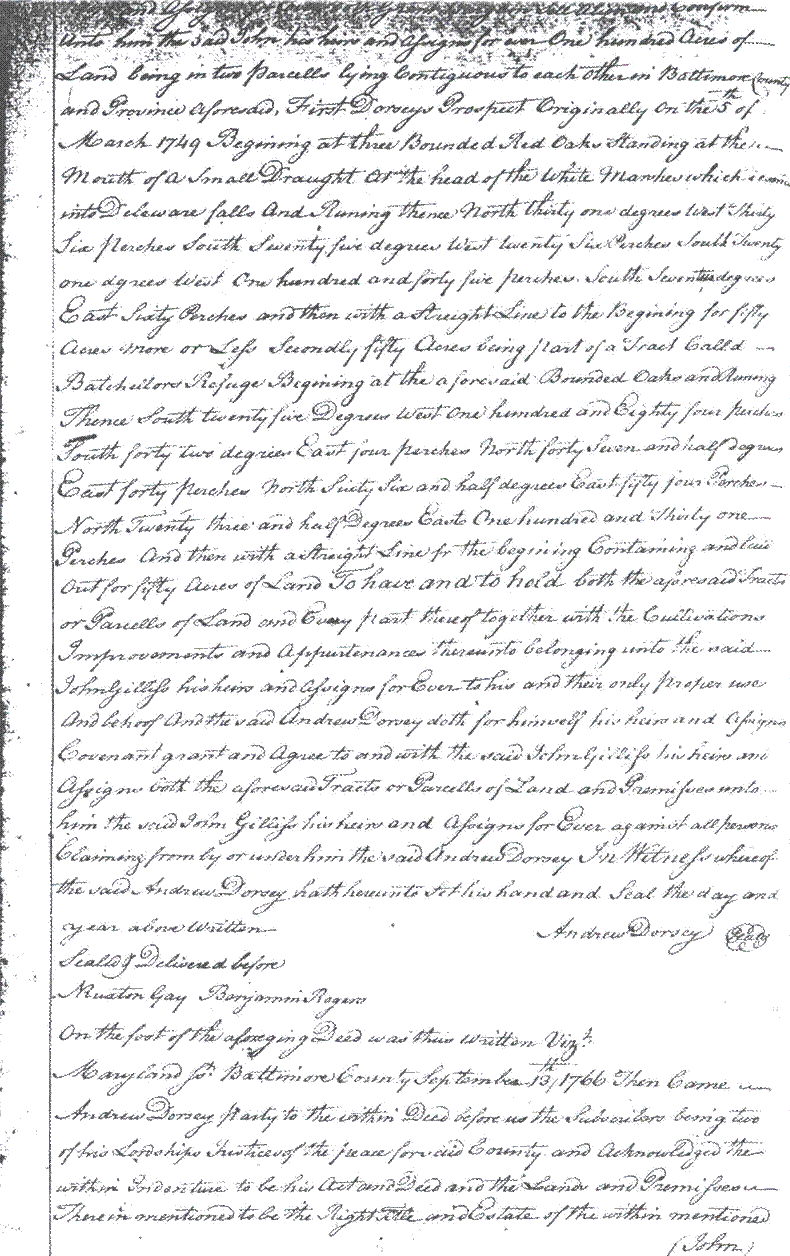 and Confirm
Unto him the Said John his heirs and Assigns for ever One hundred Acres of
Land being in two parcells lying Contiguous to each other in Baltimore County
and Province aforesaid, First Dorseys Prospect Originally On the 5th of
March 1749 Begining at three Bounded Red Oaks Standing at the
Mouth of a Small Draught at the head of the White Marshes which
into Deleware falls And Runing thence North thirty one degrees West Thirty
Six perches South Seventy five degrees West twenty Six Perches South Twenty
one dgrees West One hundred and forty five perches South degrees
East Sixty Perches and then with a Streight Line to the Begining for fifty
Acres more or Less Secondly fifty Acres being part of a Tract Calld
Batchellors Refuge Begining at the aforesaid Bounded Oaks and Runing
Thence South twenty five Degrees West One hundred and Eighty four perches
South forty two degrees East four perches North forty Seven and half degrees
East forty perches North Sixty Six and half degrees East fifty four Perches
North Twenty three and half Degrees East One hundred and Thirty one
Perches And then with a Straight Line fr the begining Containing and laid
Out for fifty Acres of Land To have and to hold both the aforesaid Tracts
or Parcells of Land and Every part thereof together with the Cultivations
Improvements and Appurtenances thereunto belonging unto the said
John Gilliss his heirs and Assigns for Ever to his and their only proper use
And behoof And the said Andrew Dorsey doth for himself his heirs and Assigns
Covenant grant and Agree to and with the said John Gilliss his heirs and
Assigns both the aforesaid Tracts or Parcells of Land and Premisses unto
him the said John Gilliss his heirs and Assigns for Ever against all persons
Claiming from by or under him the said Andrew Dorsey In Witness whereof
the said Andrew Dorsey hath hereunto Set his hand and Seal the day and
year above Written Andrew Dorsey Seal
Seal'd & Delivered before
Nuxton Gay Benjamin Rogers
On the foot of the aforegoing Deed was thus Written Vizt
Maryland Ss Baltimore County September 13th 1766 Then Came
Andrew Dorsey party to the within Deed before us the Subscribers being two
of his Lordships Justices of the peace for said County and Acknowledged the
within Indenture to be his Act and Deed and the Land and Premisses
Therein mentioned to be the Right Title and Estate of the within mentioned
(John)